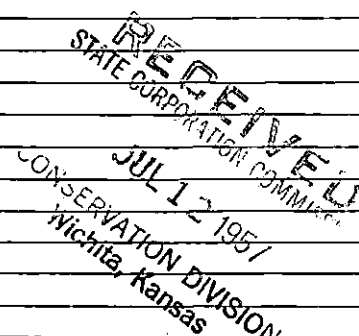 RECEIVED
STATE CORPORATION COMMISSION
JUL 12 1957
CONSERVATION DIVISION
Wichita, Kansas